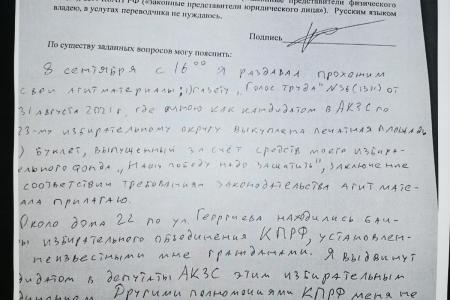 РФ («Законные представители физического
представители юридического лица»). Русским языком
владею, в услугах переводчика не нуждаюсь.
Подпись
По существу заданных вопросов могу пояснить:
8 сентября с 16⁰⁰ я раздавал прохожим
свои агитматериалы: 1) газету „Голос труда" №36(1311) от
31 августа 2021 г, где мною как кандидатом в АКЗС по
23-му избирательному округу выкуплена печатная площадь
) буклет, выпущенный за счёт средств моего избира-
ельного фонда „Нашу победу надо защитить", заключение
соответствии требованиям законодательства агитмате-
ала прилагаю.
Около дома 22 по ул. Георгиева находились
ы избирательного объединения КПРФ, установлен-
неизвестными мне гражданами. Я выдвинут
дидатом в депутаты АКЗС этим избирательным
Другими полномочиями КПРФ меня не